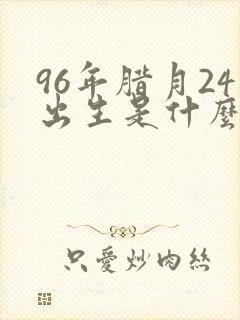 96年腊月24
出生是什麼
只愛炒肉絲